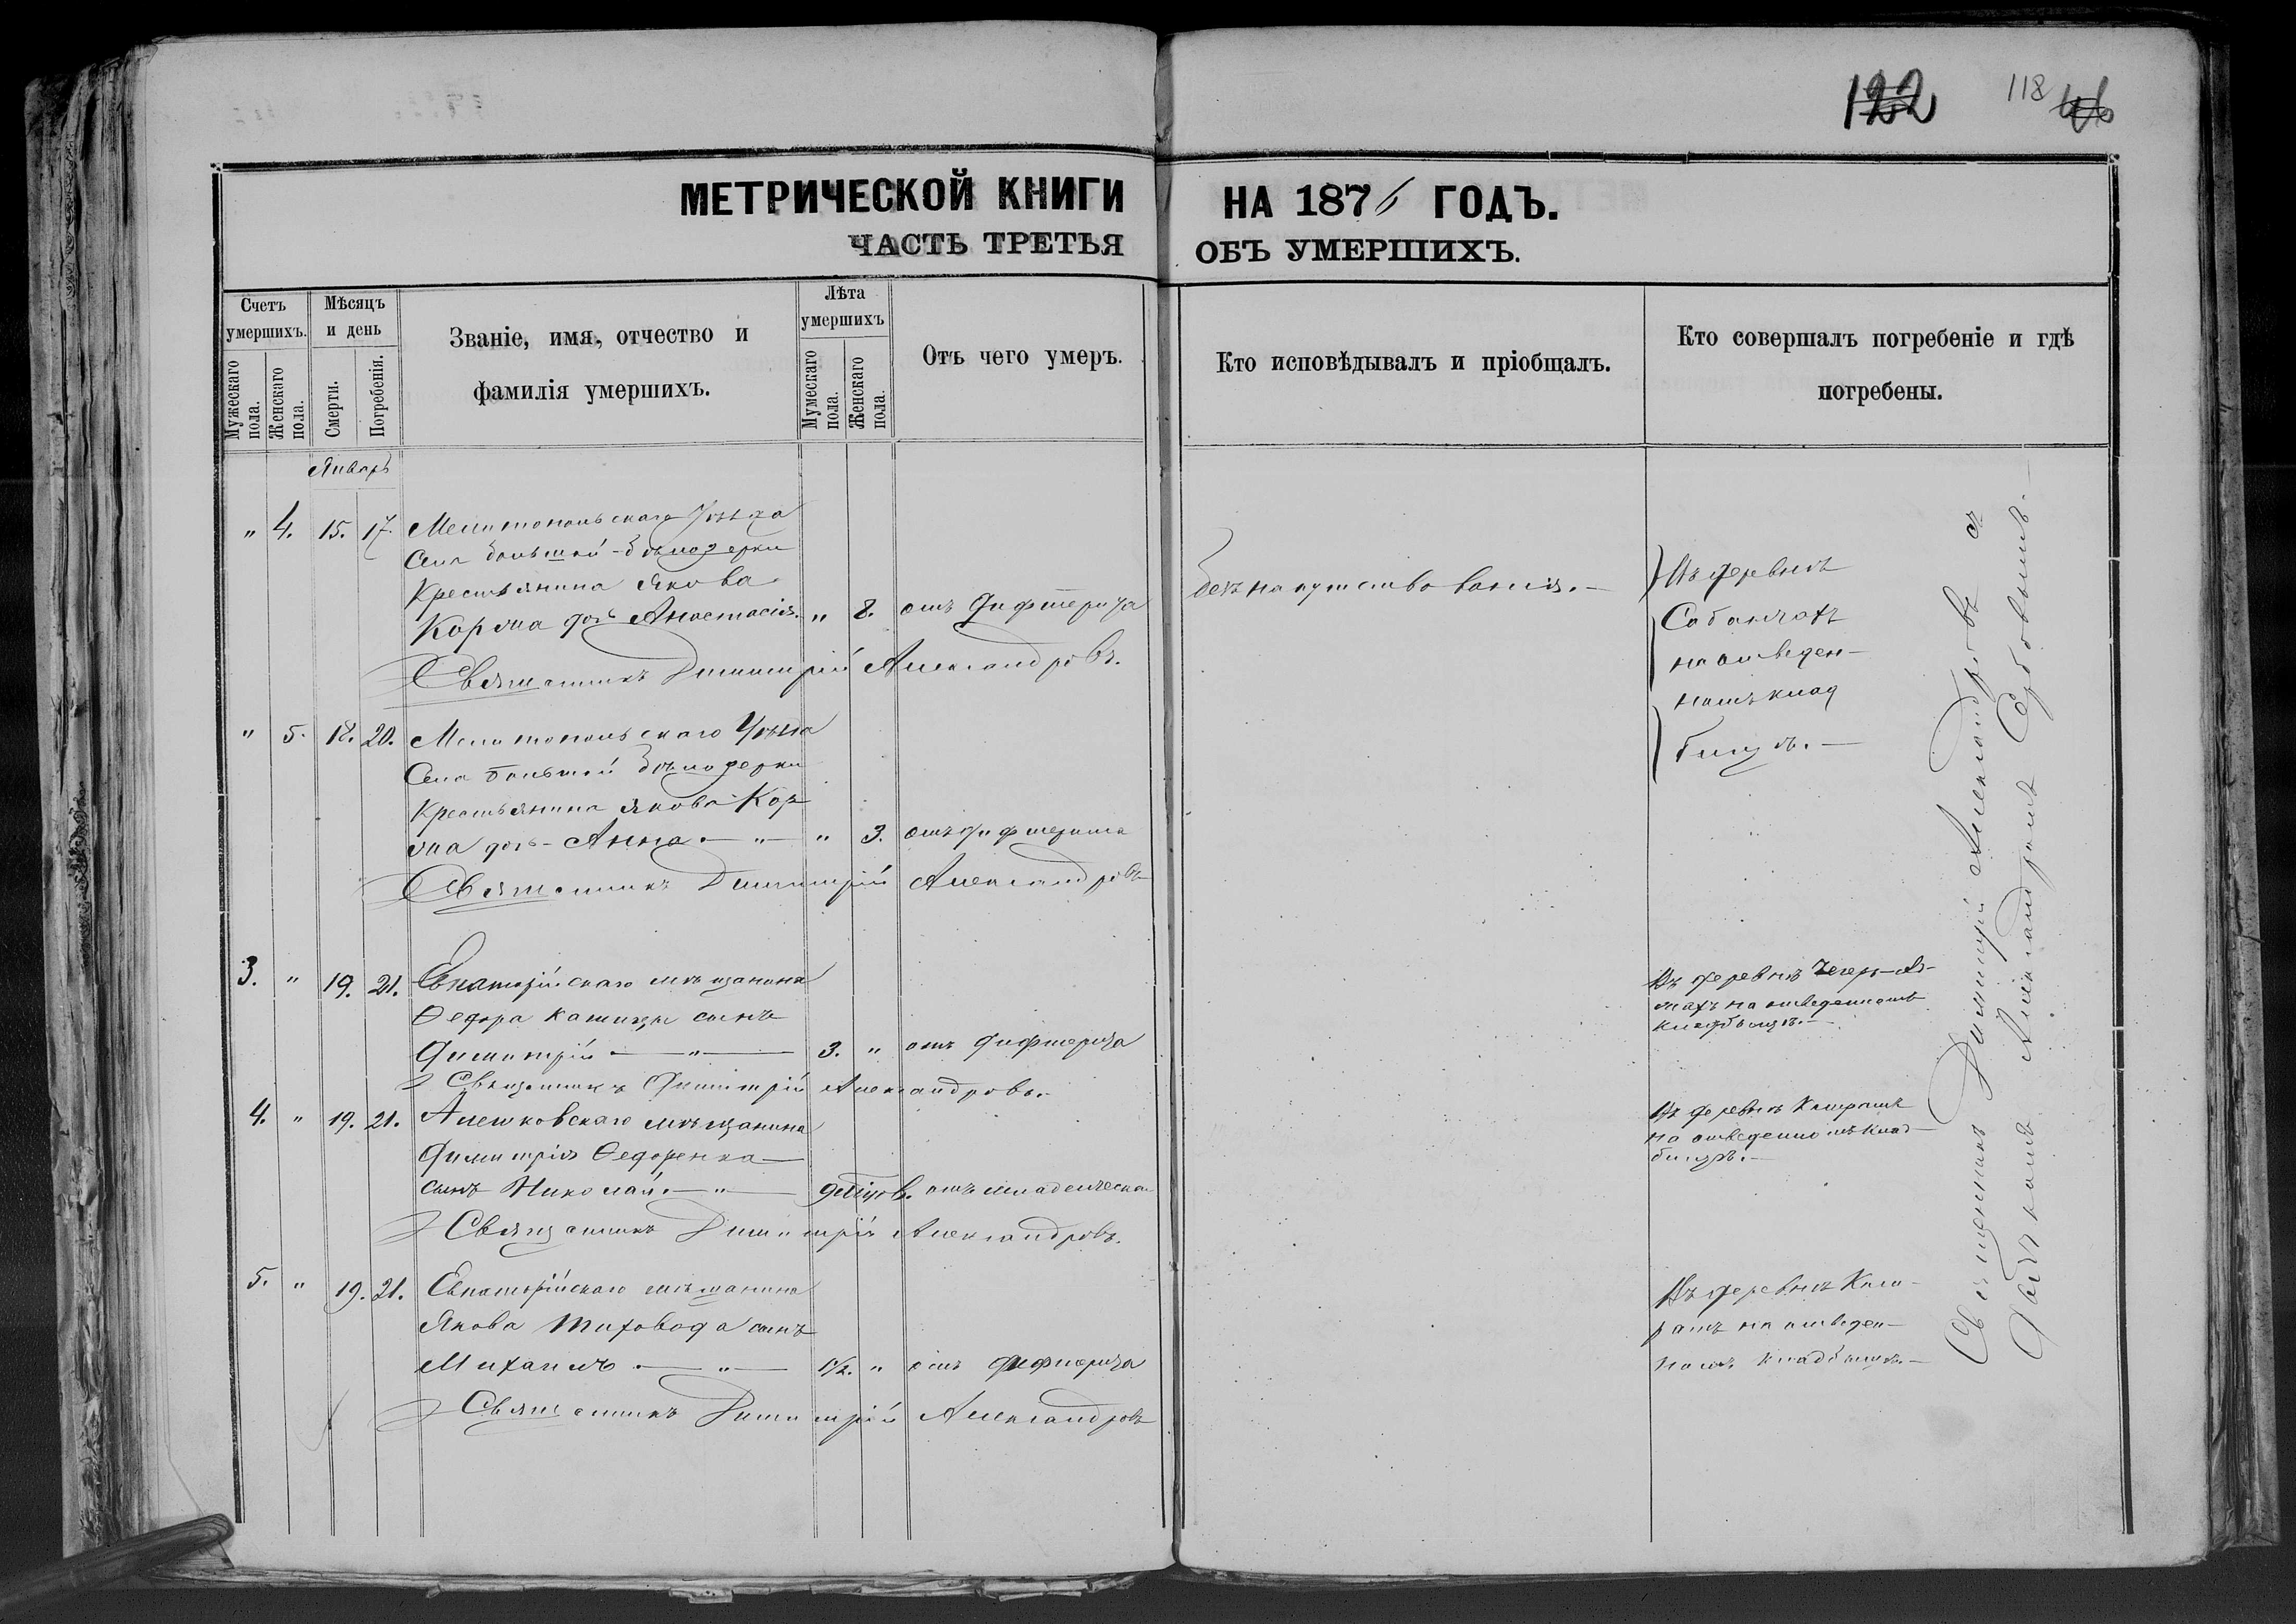 122 118 46
МЕТРИЧЕСКОЙ КНИГИ НА 1876 ГОДЪ.
ЧАСТЬ ТРЕТЬЯ ОБЪ УМЕРШИХЪ.
Счетъ умершихъ.
Мужескаго пола.
Женскаго пола.
Мѣсяцъ и день
Смерти.
Погребенія.
Званіе, имя, отчество и
фамилія умершихъ.
Лѣта умершихъ
Мумескаго пола.
Женскаго пола.
Отъ чего умеръ.
Кто исповѣдывалъ и пріобщалъ.
Кто совершалъ погребеніе и гдѣ
погребены.
Январь
" 4. 15. 17. Мелитопольскаго Уѣзда
Села большой-бѣлозерки
Крестьянина Якова
Корма дочь Анастасія. " 8. отъ дифтерита
безъ напутствованія.
Въ деревнѣ
Собанчахъ
на отведен-
номъ клад
бищѣ.
Священникъ Димитрій Александровъ.
" 5. 18. 20. Мелитопольскаго Уѣзда
Села большой бѣлозерки
Крестьянина Якова Кор
ма дочь Анна " " 3. отъ дифтерита
Священникъ Димитрій Александровъ
3. " 19. 21. Евпаторійскаго мѣщанина
Ѳедора сынъ
Димитрій " 3. " отъ дифтерита
Въ деревнѣ
махъ на отведенномъ
кладбищѣ.
Священникъ Димитрій Александровъ.
4. " 19. 21. Алешковскаго мѣщанина
Димитрія Ѳедоренка
сынъ Николай. " отъ младенческой
Въ деревнѣ
на отведенномъ клад
бищѣ.
Священникъ Димитрій Александровъ.
5. " 19. 21. Евпаторійскаго мѣщанина
Якова Тиховода сынъ
Михаилъ " 1/2. " отъ дифтерита
Въ деревнѣ
на отведен-
номъ кладбищѣ.
Священникъ Димитрій Александровъ
Священникъ Димитрій Александровъ съ
Александромъ